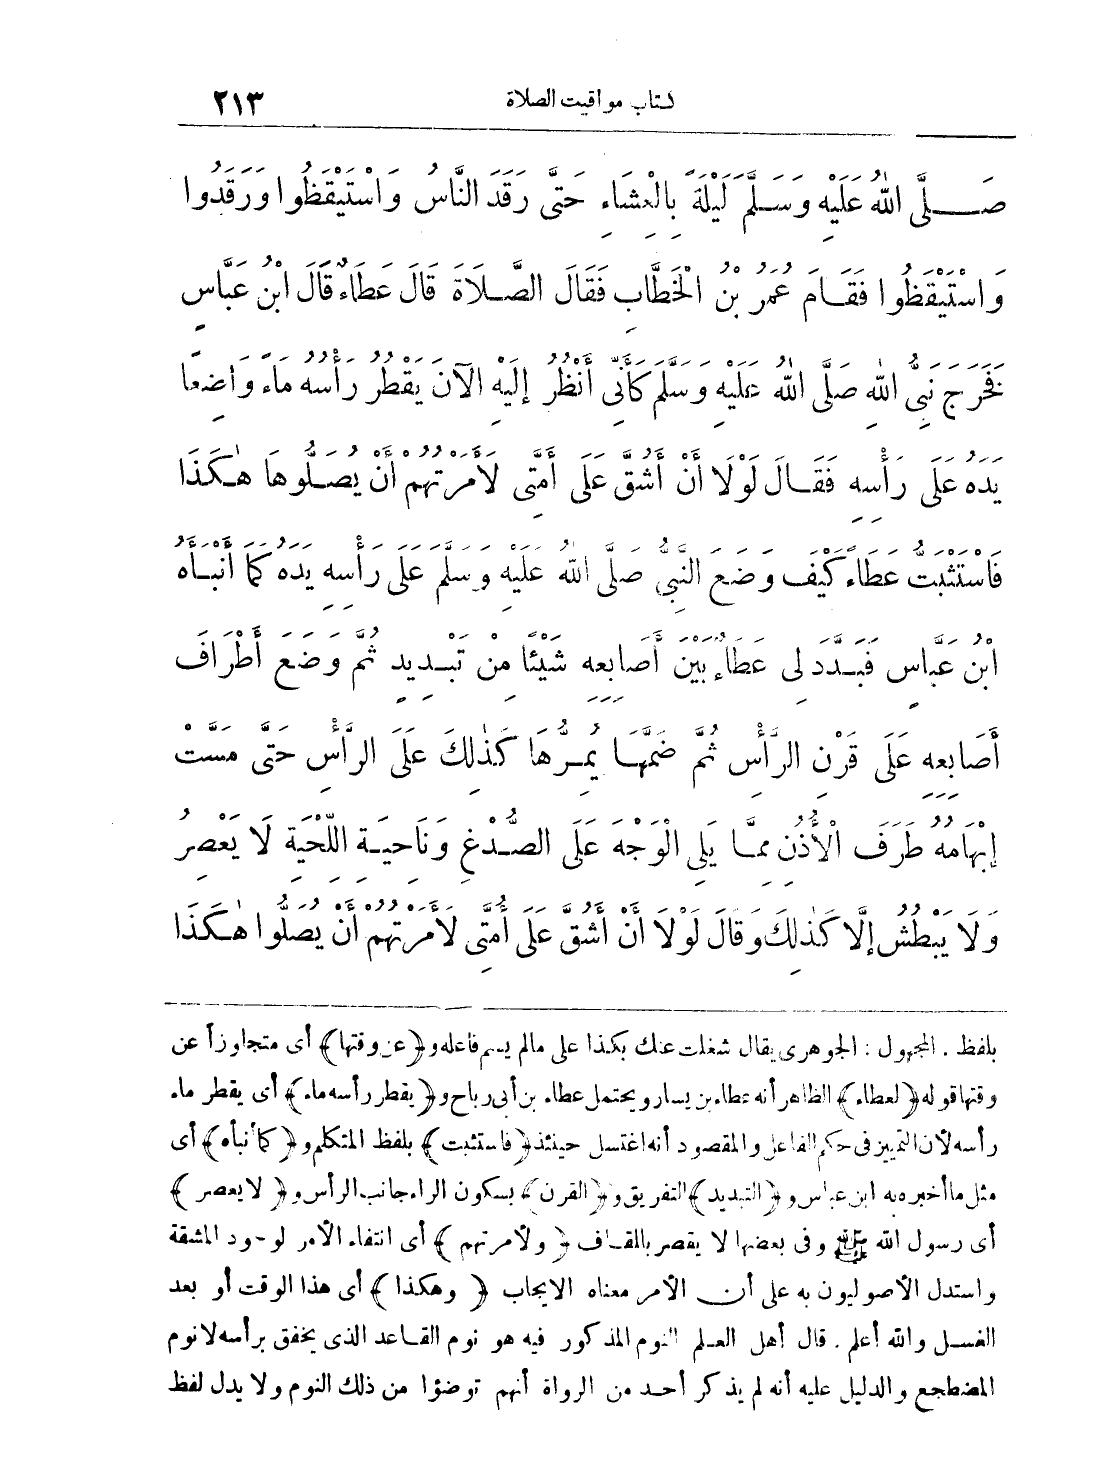 كتاب مواقيت الصلاة ٢١٣
صَلَّى اللهُ عَلَيْهِ وَسَلَّمَ لَيْلَةً بِالْعِشَاءِ حَتَّى رَقَدَ النَّاسُ وَاسْتَيْقَظُوا وَرَقَدُوا
وَاسْتَيْقَظُوا فَقَامَ عُمَرُ بْنُ الْخَطَّابِ فَقَالَ الصَّلَاةَ قَالَ عَطَاءٌ قَالَ ابْنُ عَبَّاسٍ
فَخَرَجَ نَبِيُّ اللهِ صَلَّى اللهُ عَلَيْهِ وَسَلَّمَ كَأَنِّي أَنْظُرُ إِلَيْهِ الْآنَ يَقْطُرُ رَأْسُهُ مَاءً وَاضِعًا
يَدَهُ عَلَى رَأْسِهِ فَقَالَ لَوْلَا أَنْ أَشُقَّ عَلَى أُمَّتِي لَأَمَرْتُهُمْ أَنْ يُصَلُّوهَا هٰكَذَا
فَاسْتَثْبَتُّ عَطَاءً كَيْفَ وَضَعَ النَّبِيُّ صَلَّى اللهُ عَلَيْهِ وَسَلَّمَ عَلَى رَأْسِهِ يَدَهُ كَمَا أَنْبَأَهُ
ابْنُ عَبَّاسٍ فَبَدَّدَ لِي عَطَاءٌ بَيْنَ أَصَابِعِهِ شَيْئًا مِنْ تَبْدِيدٍ ثُمَّ وَضَعَ أَطْرَافَ
أَصَابِعِهِ عَلَى قَرْنِ الرَّأْسِ ثُمَّ ضَمَّهَا يُمِرُّهَا كَذٰلِكَ عَلَى الرَّأْسِ حَتَّى مَسَّتْ
إِبْهَامُهُ طَرَفَ الْأُذُنِ مِمَّا يَلِي الْوَجْهَ عَلَى الصُّدْغِ وَنَاحِيَةِ اللِّحْيَةِ لَا يَعْصِرُ
وَلَا يَبْطُشُ إِلَّا كَذٰلِكَ وَقَالَ لَوْلَا أَنْ أَشُقَّ عَلَى أُمَّتِي لَأَمَرْتُهُمْ أَنْ يُصَلُّوا هٰكَذَا
بلفظ . المجهول : الجوهرى يقال شغلت عنك بكذا على مالم يسم فاعله و﴿عن وقتها﴾ أى متجاوزاً عن
وقتها قوله ﴿لعطاء﴾ الظاهر أنه عطاء بن يسار ويحتمل عطاء بن أبى رباح و﴿يقطر رأسه ماء﴾ أى يقطر ماء
رأسه لأن التمييز فى حكم الفاعل والمقصود أنه اغتسل حينئذ ﴿فاستثبت﴾ بلفظ المتكلم و﴿كما أنبأه﴾ أى
مثل ما أخبره به ابن عباس و﴿التبديد﴾ التفريق و﴿القرن﴾ بسكون الراء جانب الرأس و﴿لا يعصر﴾
أى رسول الله ﷺ وفى بعضها لا يقصر بالقاف ﴿ولأمرتهم﴾ أى انتفاء الأمر لوجود المشقة
واستدل الأصوليون به على أن الأمر معناه الايجاب ﴿وهكذا﴾ أى هذا الوقت أو بعد
الغسل والله أعلم . قال أهل العلم النوم المذكور فيه هو نوم القاعد الذى يخفق برأسه لا نوم
المضطجع والدليل عليه أنه لم يذكر أحد من الرواة أنهم توضؤا من ذلك النوم ولا يدل لفظ